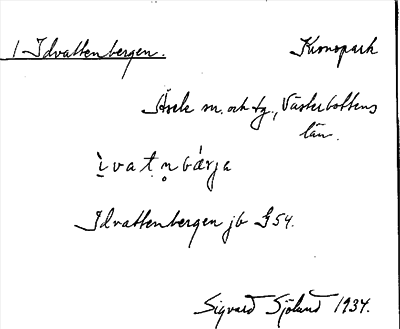 1 Idvattenbergen. Kronopark
Åsele sn. och tg., Västerbottens
län.
ìvatn̥bǽrja
Idvattenbergen jb G54.
Sigvard Sjölund 1934.